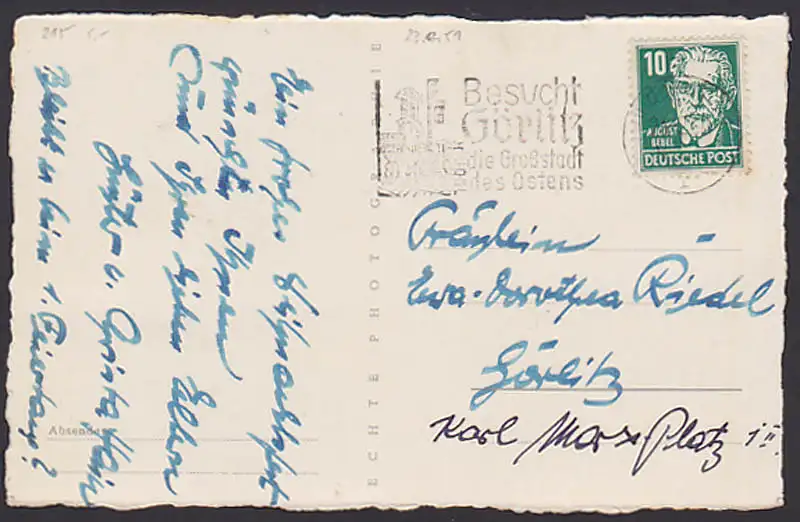 215 5,-
22.12.51
Besucht
Görlitz
die Großstadt
des Ostens
10
AUGUST
BEBEL
DEUTSCHE POST
Fräulein
Ewa-Dorothea Riedel
Görlitz
Karl Marx Platz 1 II.
ECHTE PHOTOGRAPHIE
Absender:
Ein frohes Weihnachtsfest
wünschen Ihnen
und Ihren lieben Eltern
u. Christa
Bleibt es beim 1. Feiertag?